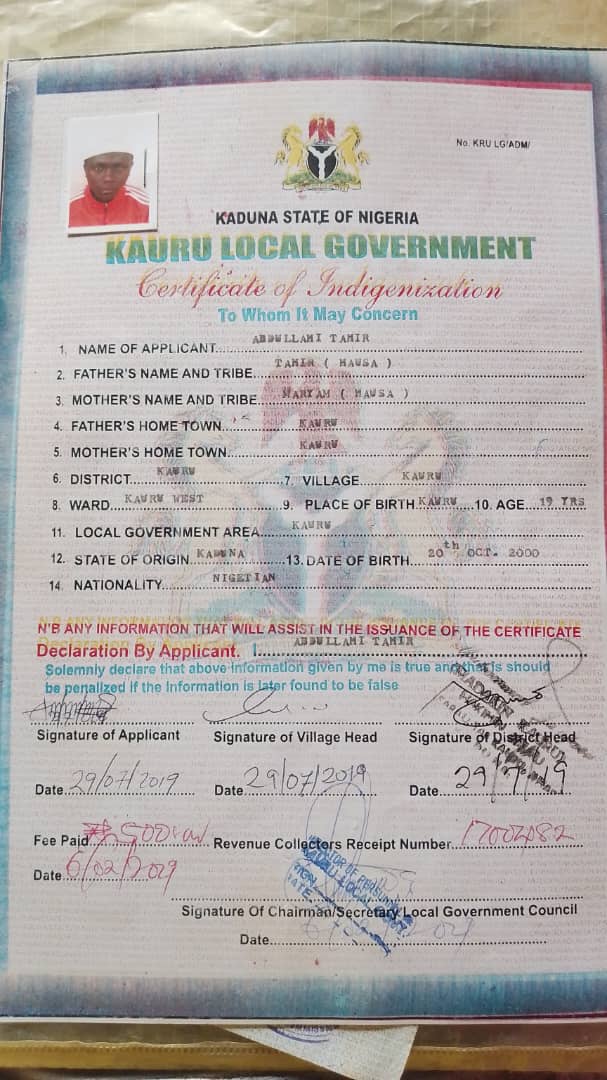 No. KRU LG/ADM/
KADUNA STATE OF NIGERIA
KAURU LOCAL GOVERNMENT
Certificate of Indigenization
To Whom It May Concern
1. NAME OF APPLICANT ABDULLAHI TAHIR
2. FATHER'S NAME AND TRIBE TAHIR ( HAUSA )
3. MOTHER'S NAME AND TRIBE MARYAM ( HAUSA )
4. FATHER'S HOME TOWN KAURU
5. MOTHER'S HOME TOWN KAURU
6. DISTRICT KAURU 7. VILLAGE KAURU
8. WARD KAURU WEST 9. PLACE OF BIRTH KAURU 10. AGE 19 YRS
11. LOCAL GOVERNMENT AREA KAURU
12. STATE OF ORIGIN KADUNA 13. DATE OF BIRTH 20th OCT. 2000
14. NATIONALITY NIGETIAN
N'B ANY INFORMATION THAT WILL ASSIST IN THE ISSUANCE OF THE CERTIFICATE
Declaration By Applicant. I ABDULLAHI TAHIR
Solemnly declare that above information given by me is true and that is should
be penalized if the Information is later found to be false
Signature of Applicant Signature of Village Head Signature of District Head
Date 29/07/2019 Date 29/07/2019 Date 29/7/19
Fee Paid Revenue Collectors Receipt Number 17004082
Date 6/02/2019
KAURU LOCAL GOVT.
SIGN
DATE
Signature Of Chairman/Secretary Local Government Council
Date